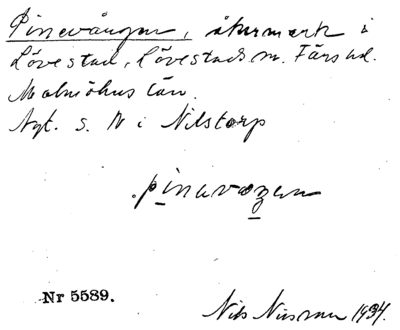 Pinevången, åkermark i
Lövestad, Lövestads sn. Färs hd.
Malmöhus län.
Nyt. s. N i Nilstorp
.pinavæŋen
Nr 5589.
Nils Nilsson 1934.